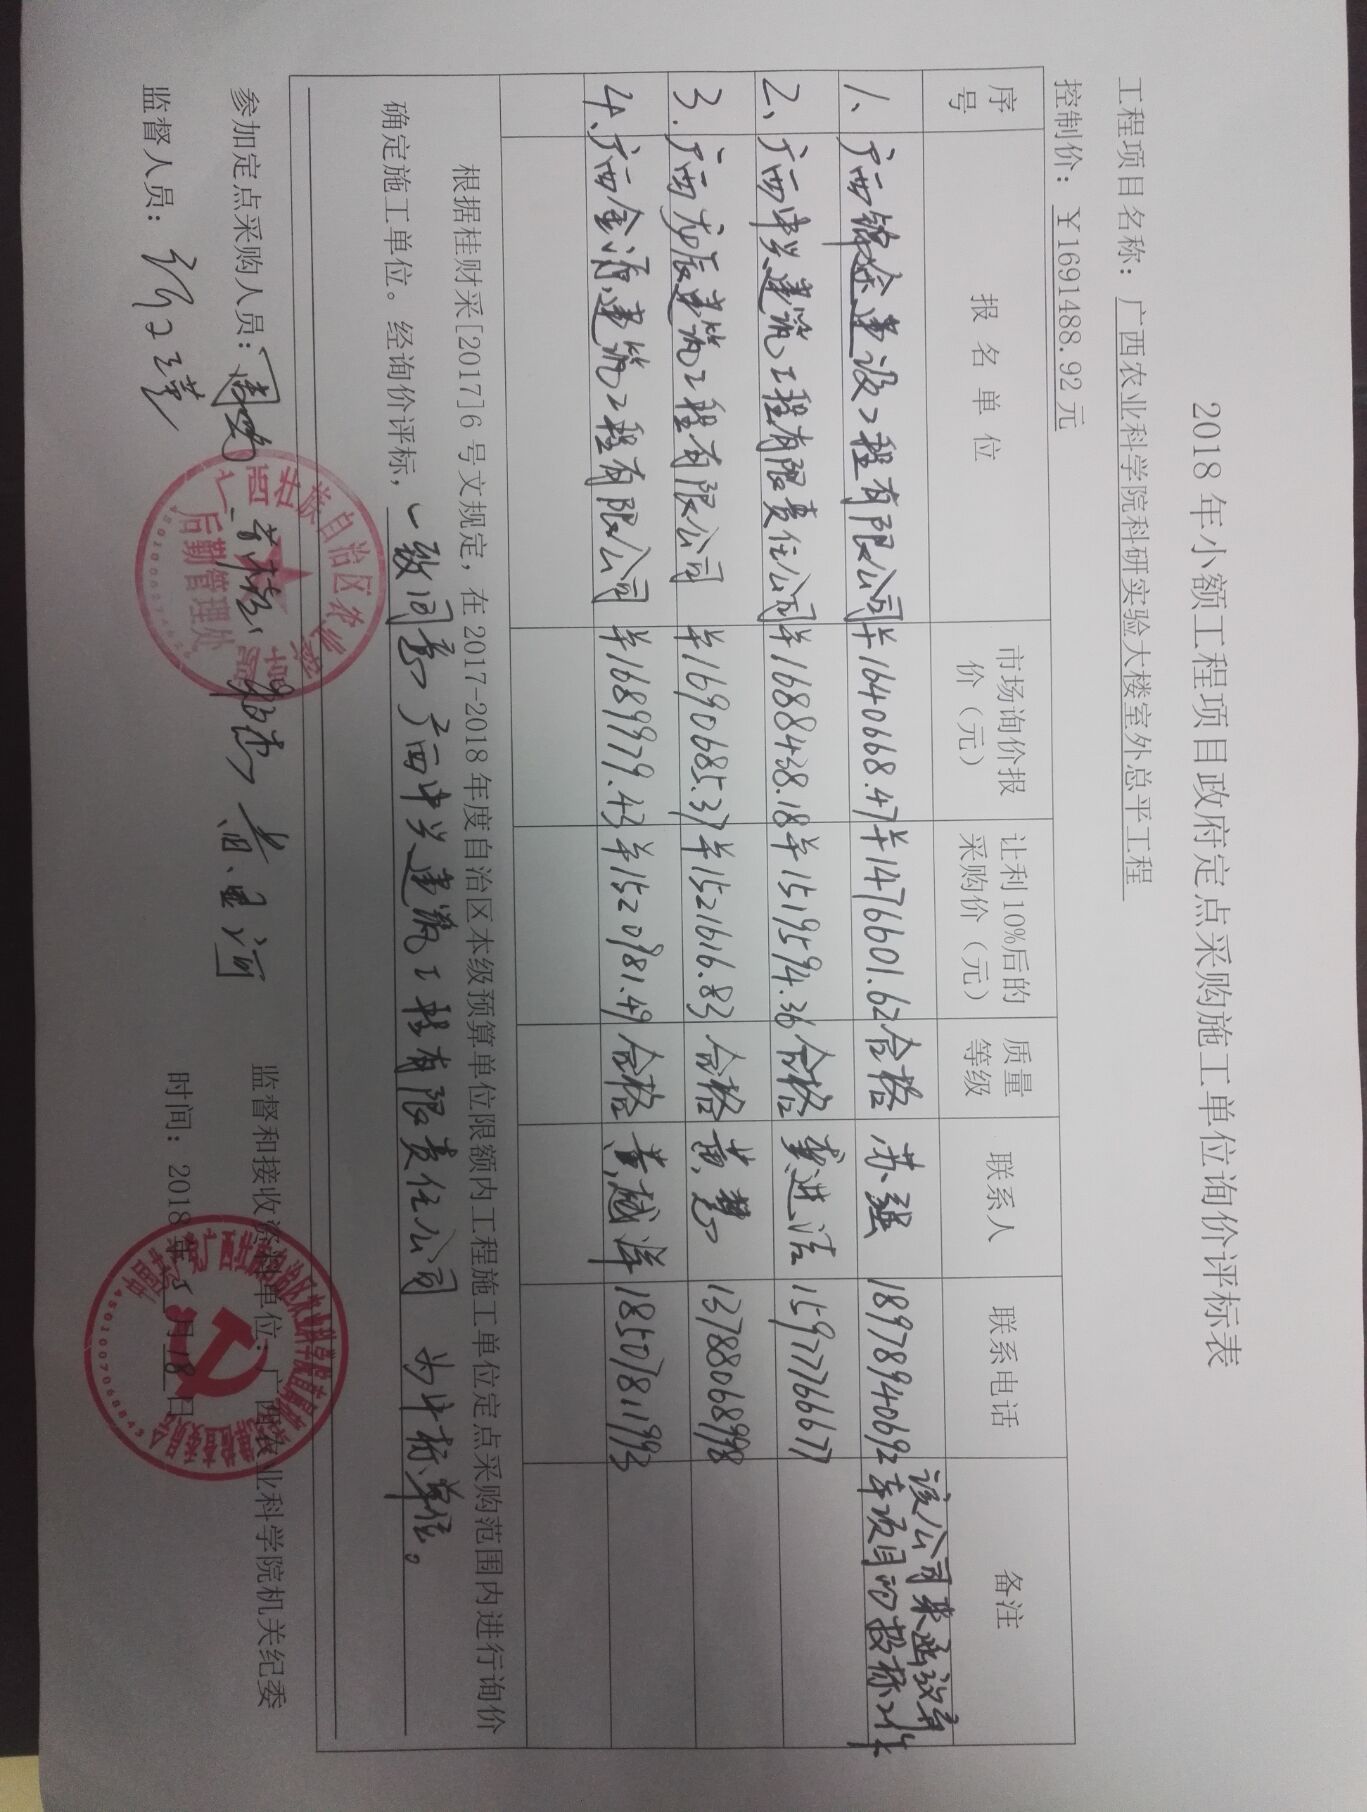 2018年小额工程项目政府定点采购施工单位询价评标表
工程项目名称：广西农业科学院科研实验大楼室外总平工程
控制价：￥1691488.92元
序号 报名单位 市场询价报价（元） 让利10%后的采购价（元） 质量等级 联系人 联系电话 备注
1、广西锦途建设工程有限公司 ￥1640668.47 ￥1476601.62 合格 苏强 18978940692 该公司来函放弃本项目的投标工作
2、广西中兴建筑工程有限责任公司 ￥1688438.18 ￥1519594.36 合格 进洁 15977766677
3.广西龙辰建筑工程有限公司 ￥1690685.37 ￥1521616.83 合格 黄慧 13788068998
4、广西金源建筑工程有限公司 ￥1689979.43 ￥1520981.49 合格 黄越洋 18507811993
根据桂财采[2017]6号文规定，在2017-2018年度自治区本级预算单位限额内工程施工单位定点采购范围内进行询价
确定施工单位。经询价评标，一致同意广西中兴建筑工程有限责任公司 为中标单位。
参加定点采购人员：
监督和接收资料单位：广西农业科学院机关纪委
监督人员：
时间：2018年5月18日
广西壮族自治区农业科学院
后勤管理处